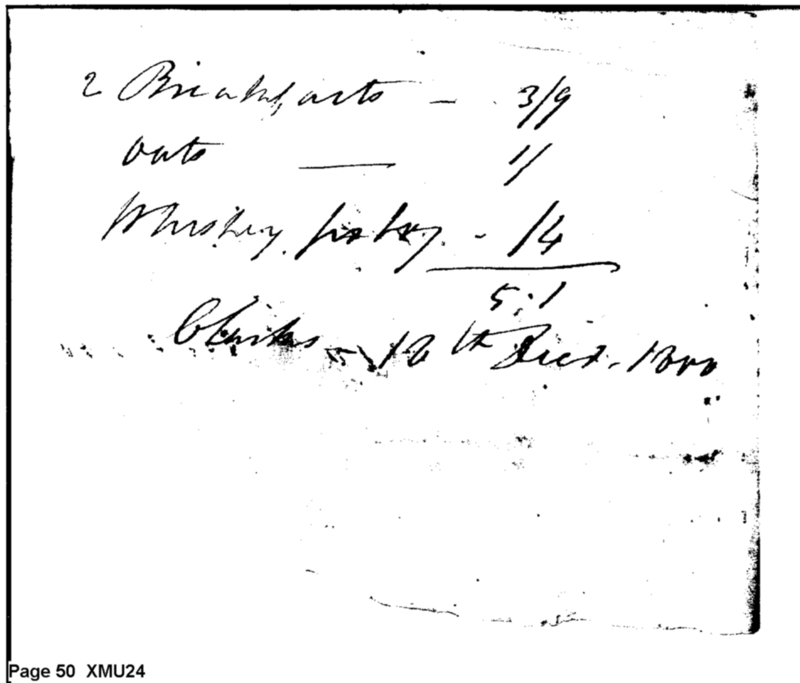 2 Breakfasts - 3/9
Oats — 1/
Whiskey - /4
5:1
Clarks 18th Decr. 1800
Page 50 XMU24